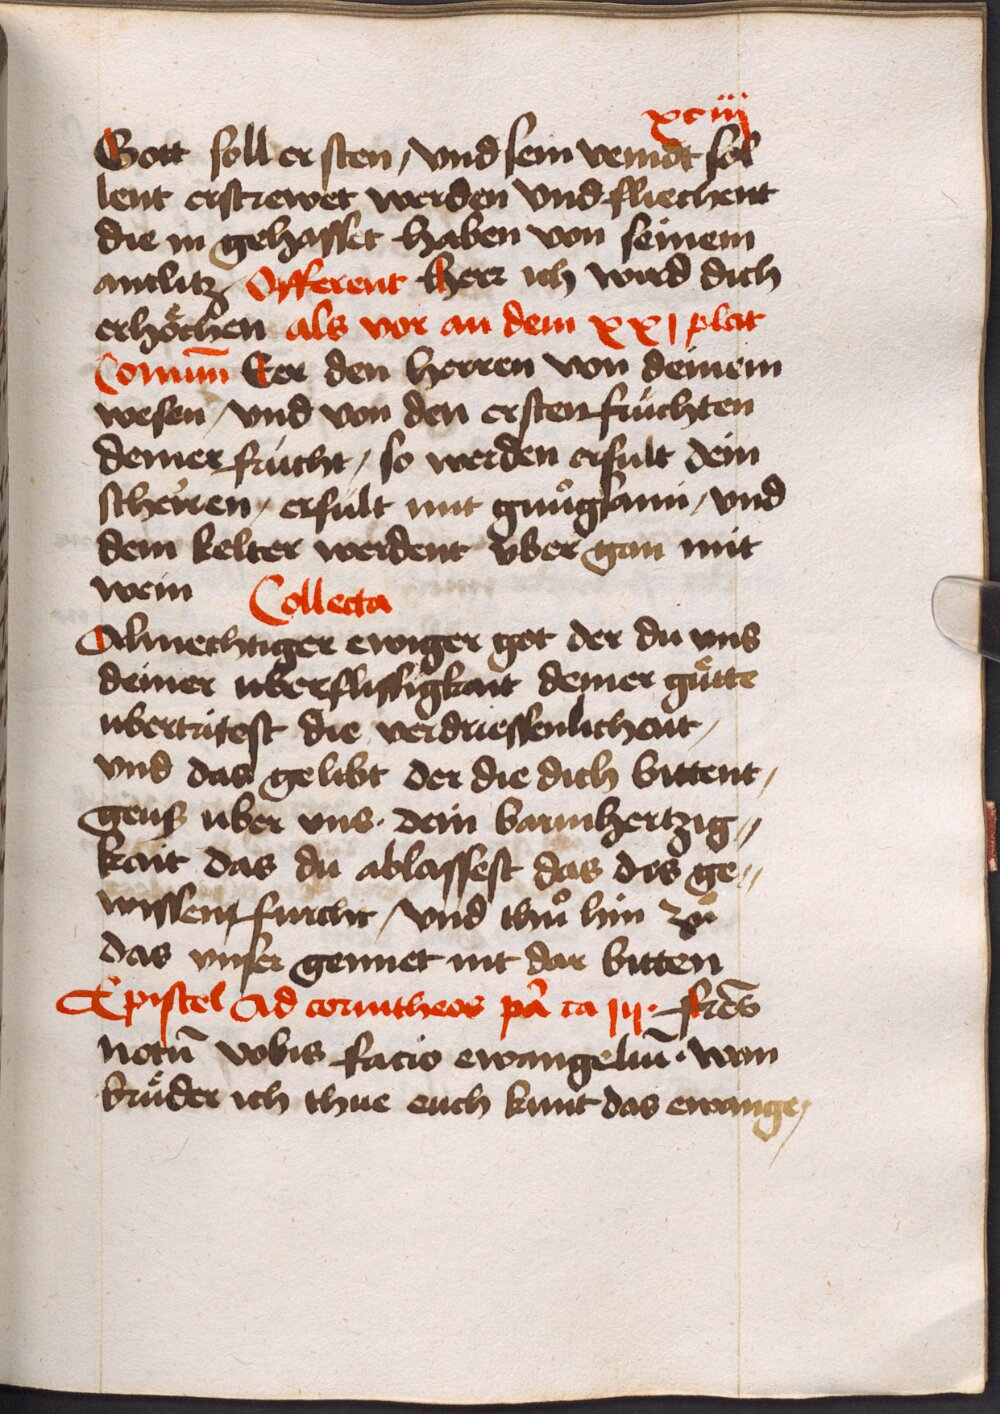 xciij
Gott soll er sten / vnd sein veindt sol
lent erstrewet werden vnd fliechent
die in gehasset haben von seinem
antlitz Offerent Herr ich wird dich
erhöchen als vor an dem xxj plat
Comūn Eer den herren von deinem
wesen / vnd von den ersten früchten
deiner frücht / so werden erfult dein
scheüren / erfült mit gnuͦgsami / vnd
dein kelter werdent vber gan mit
wein Collecta
Almechtiger ewiger got der du vns
deiner uberflissigkait deiner guͤtte
ubertritest die verdriessenlicheut /
vnd das gelibt der die dich bittent /
geuß uber vns · dein barmhertzig //
kait das du ablassest das des ge //
wissent furcht / vnd thuͦ hin zuͦ
das vnser gemiet nit dar bitten
Epistel Ad corintheos pͣ ca iij · Frēs
notū vobis facio ewangeliū · wan
bruͤder ich thue euch kunt das ewange /